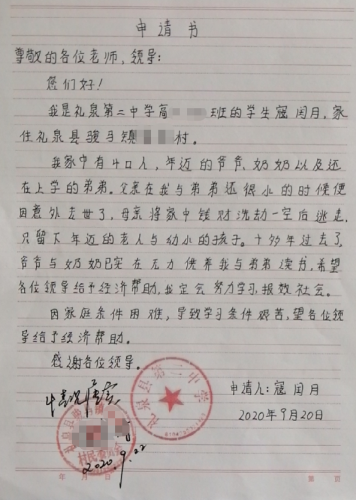 申请书
尊敬的各位老师,领导:
您们好!
我是礼泉第二中学高 班的学生寇闰月,家
住礼泉县骏马镇 村。
我家中有4口人,年迈的爷爷,奶奶以及还
在上学的弟弟。父亲在我与弟弟还很小的时候便
因意外去世了,母亲将家中钱财洗劫一空后逃走,
只留下年迈的老人与幼小的孩子。十多年过去了,
爷爷与奶奶已实在无力供养我与弟弟读书,希望
各位领导给予经济帮助,我定会努力学习,报效社会。
因家庭条件困难,导致学习条件艰苦,望各位领
导给予经济帮助。
感谢各位领导。
礼泉县第二中学
申请人:寇闰月
2020年9月20日
村民委员会
2020.9.22